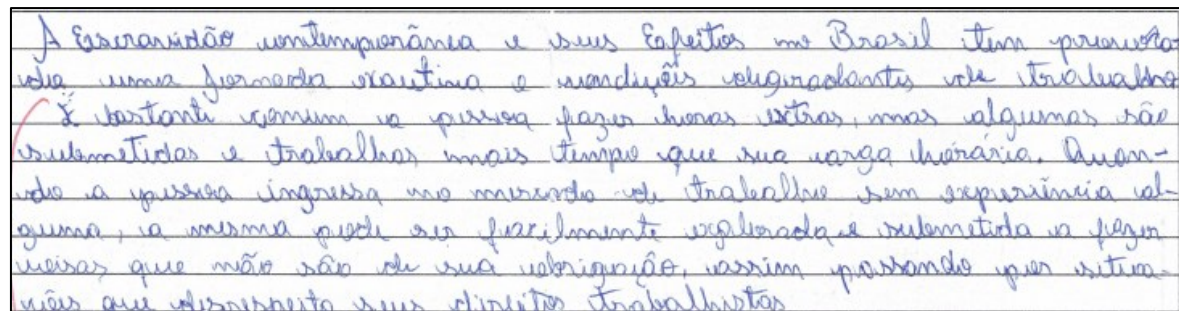 A Escravidão contemporânea e seus Efeitos no Brasil tem provoca-
do uma jornada exautiva e condições degradantes de trabalho
É bastante comum a pessoa fazer horas extras, mas algumas são
submetidas a trabalhas mais tempo que sua carga horária. Quan-
do a pessoa ingressa no mercado de trabalho sem experiência al-
guma, a mesma pode ser facilmente explorada e submetida a fazer
coisas que não são de sua obrigação, assim passando por situa-
ções que desrespeita seus direitos trabalhistas